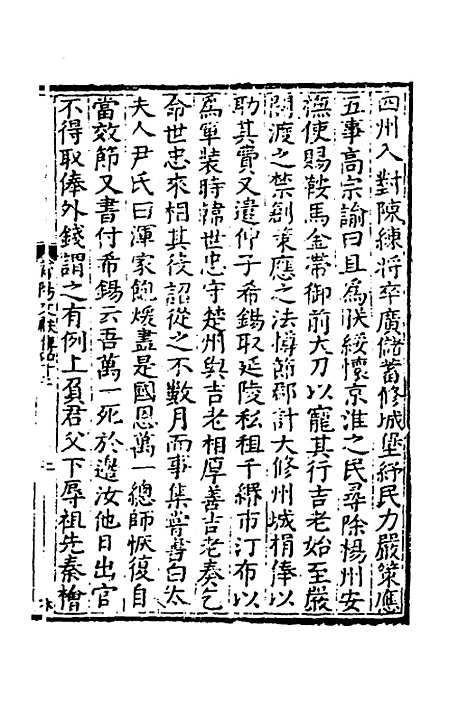 四州入對陳練將卒廣儲蓄修城堡紓民力嚴策應
五事高宗諭曰且為朕綏懷京淮之民尋除楊州安
撫使賜鞍馬金帶御前大刀以寵其行吉老始至嚴
關渡之禁創策應之法撙節郡計大修州城捐俸以
助其費又遣仲子希錫取延陵私租千緡市汀布以
為軍装時韓世忠守楚州與吉老相厚善吉老奏乞
命世忠來相其役詔從之不數月而事集嘗書白太
夫人尹氏曰渾家飽煖盡是國恩萬一總師恢復自
當效節又書付希錫云吾萬一死於邊汝他日出官
不得取俸外錢謂之有例上負君父下辱祖先秦檜